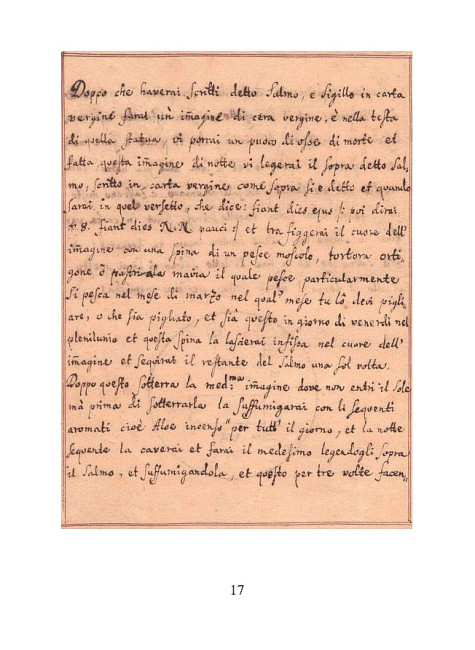 Doppo che haverai scritti detto Salmo, e sigillo in carta
vergine farai un' imagine di cera vergine, e nella testa
di quella statua, vi porrai un puoco di osse di morte et
fatta questa imagine di notte vi legerai il sopra detto Sal
mo, scritto in carta vergine come sopra si e detto et quando
sarai in quel versetto, che dice: fiant dies ejus /: poi dirai
v. 8. fiant dies N. N. pauci :/ et tra figgerai il cuore dell'
imagine con una spina di un pesce moscolo, tortora orti,
gone ò il quale pesce, particularmente
si pesca nel mese di marzo nel qual' mese tu lò devi pigli
are, o che sia pigliato, et sia questo in giorno di venerdi nel
plenilunio et questa spina la lascierai infissa nel cuore dell'
imagine et seguirai il restante del Salmo una sol volta.
Doppo questo sotterra la med:ma imagine dove non entri il Sole
mà prima di sotterrarla la suffumigarai con li sequenti
aromati cioè Aloe incenso per tutt' il giorno, et la notte
sequente la caverai et farai il medesimo legendogli sopra
il Salmo, et suffumigandola, et questo per tre volte facen,,
17